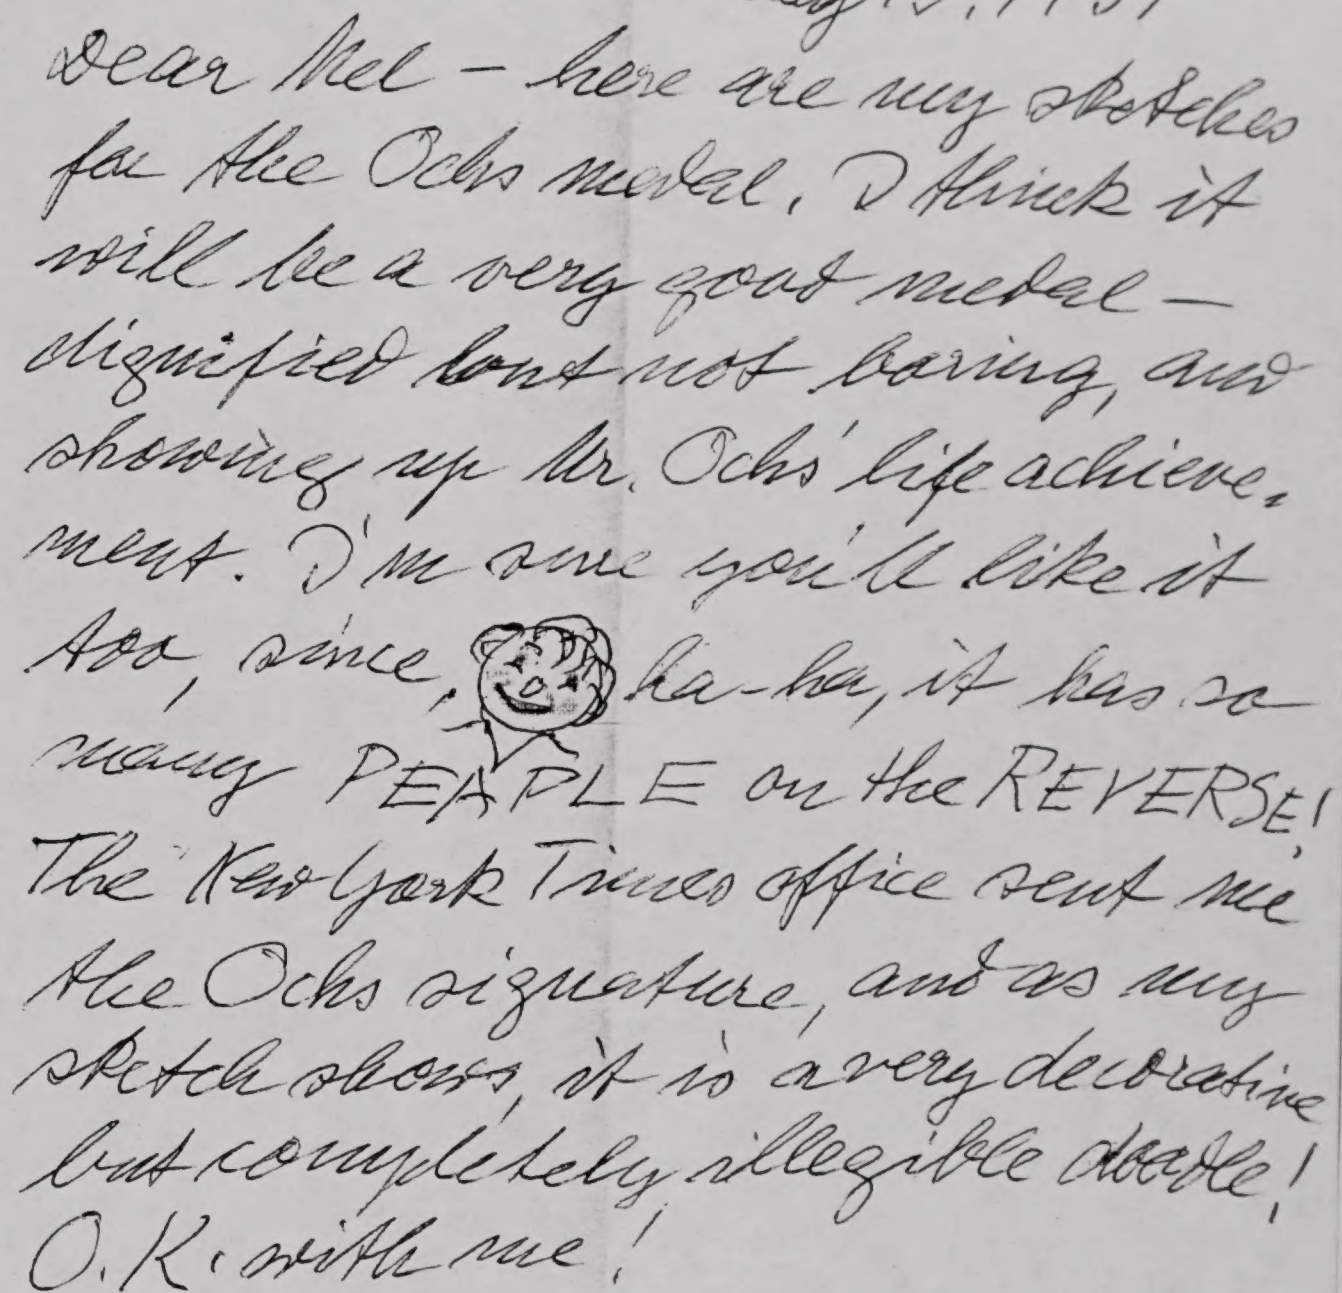 Dear Mel - here are my sketches
for the Ochs medal. I think it
will be a very good medal —
dignified but not boring, and
showing up Mr. Ochs' life achieve-
ment. I'm sure you'll like it
too, since, ha-ha, it has so
many PEAPLE on the REVERSE!
The New York Times office sent me
the Ochs signature, and as my
sketch shows, it is a very decorative
but completely illegible doodle!
O.K. with me!